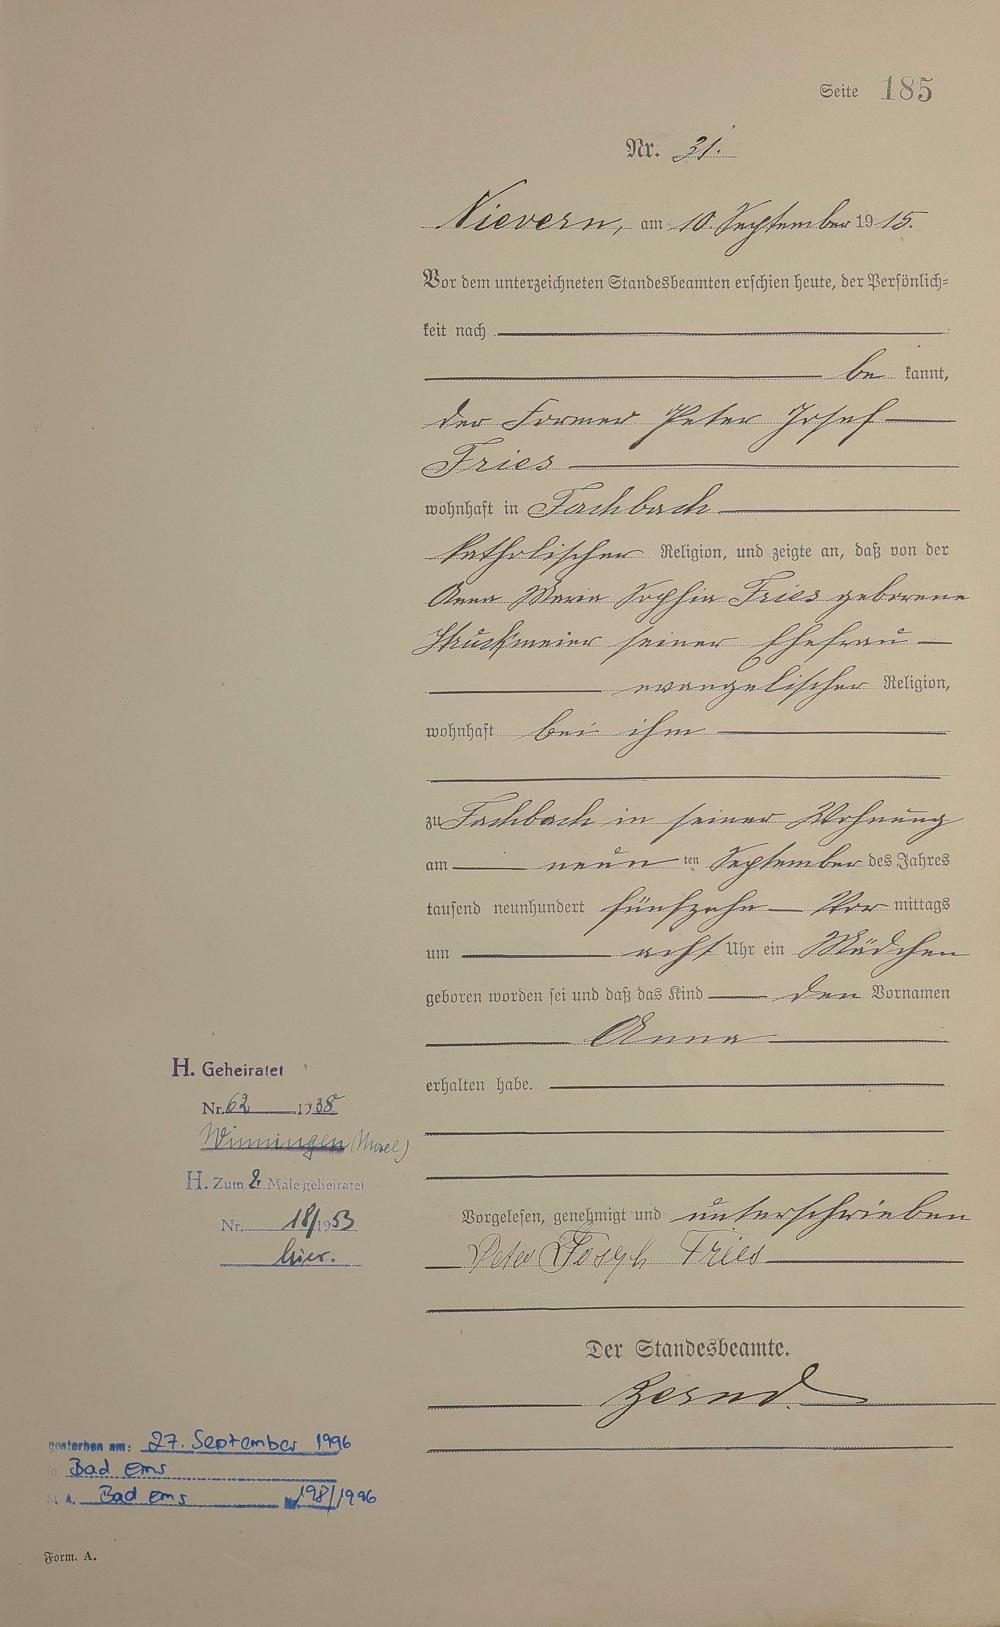 Seite 185
Nr. 31.
Nievern, am 10. September 1915.
Vor dem unterzeichneten Standesbeamten erschien heute, der Persönlich-
keit nach
be kannt,
der Former Peter Josef
Fries
wohnhaft in Fachbach
katholischer Religion, und zeigte an, daß von der
Anna Maria Sophia Fries geborene
Struckmeier seiner Ehefrau
evangelischer Religion,
wohnhaft bei ihm
zu Fachbach in seiner Wohnung
am neun ten September des Jahres
tausend neunhundert fünfzehn Vor mittags
um acht Uhr ein Mädchen
geboren worden sei und daß das Kind den Vornamen
Anna
erhalten habe.
Vorgelesen, genehmigt und unterschrieben
Peter Joseph Fries
Der Standesbeamte.
H. Geheiratet
Nr. 62 1938
Winningen (Mosel)
H. Zum 2. Male geheiratet
Nr. 18/1953
hier.
gestorben am: 27. September 1996
in Bad Ems
St. A. Bad Ems Nr. 198/1996
Form. A.